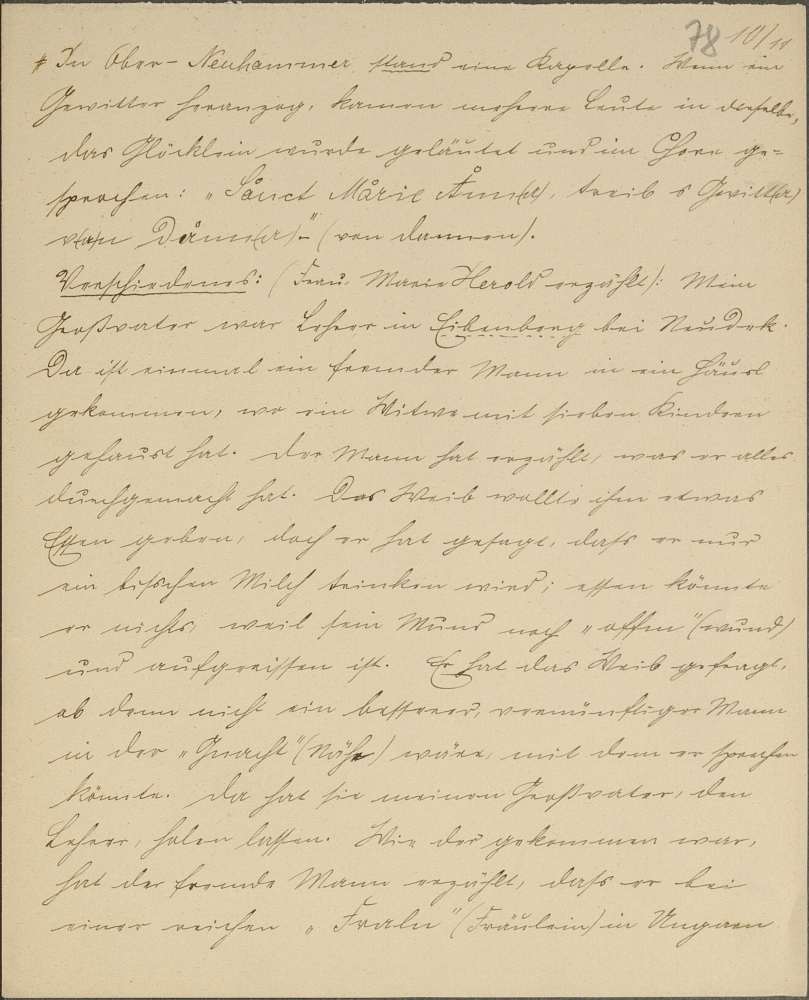 78 10/11
# In Ober-Neuhammer stand eine Kapelle. Wenn ein
Gewitter heranzog, kamen mehrere Leute in dieselbe,
das Glöcklein wurde geläutet und im Chore ge=
sprochen: „Sånct Mårie Ånn(a), treib s Gewitt(er)
v(a)n Dånn(a)." (von dannen).
Verschiedenes: (Frau Marie Herold erzählt): Mein
Großvater war Lehrer in Eibenberg bei Neudek.
Da ist einmal ein fremder Mann in ein Häusl
gekommen, wo ein Witwe mit sieben Kindern
gehaust hat. Der Mann hat erzählt, was er alles
durchgemacht hat. Das Weib wollte ihm etwas
Essen geben, doch er hat gesagt, dass er nur
ein bisschen Milch trinken wird; essen könnte
er nichts, weil sein Mund noch „offen" (wund)
und aufgreissen ist. Er hat das Weib gefragt,
ob denn nicht ein besserer, vernünftiger Mann
in der „Gnacht" (Nähe) wäre, mit dem er sprechen
könnte. Da hat sie meinen Großvater, den
Lehrer, holen lassen. Wie der gekommen war,
hat der fremde Mann erzählt, dass er bei
einer reichen „Fraln" (Fräulein) in Ungarn